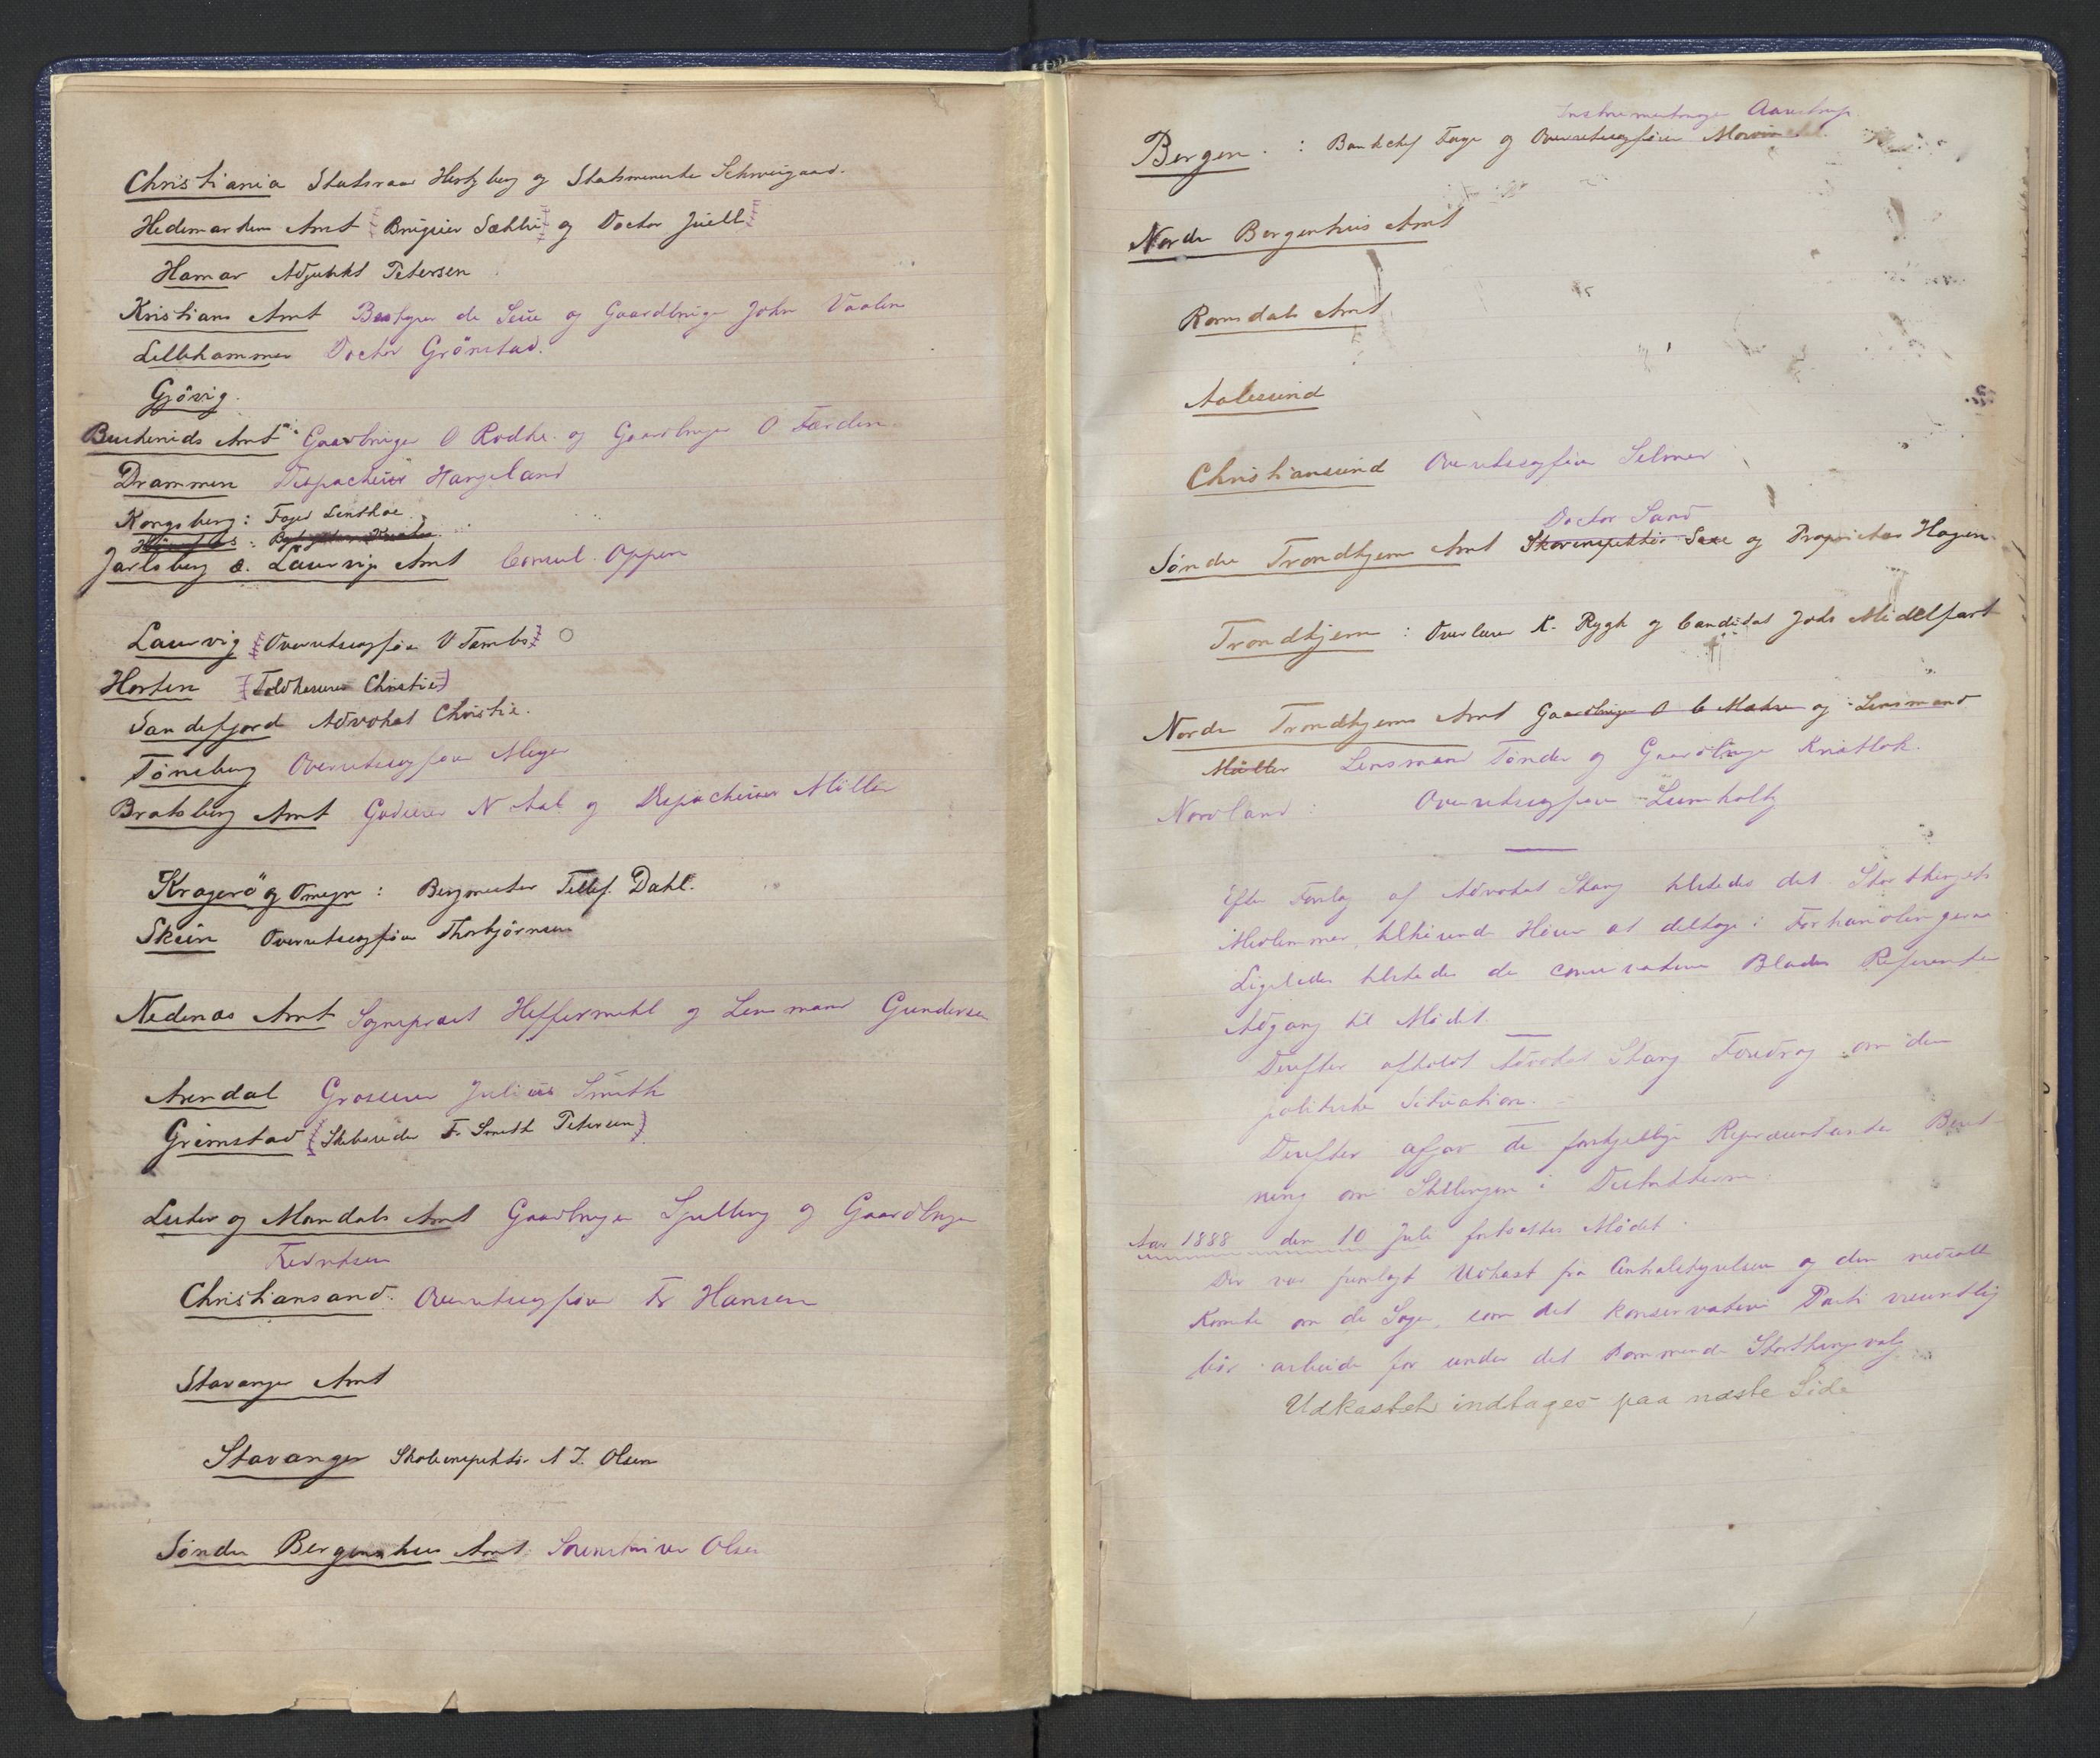 Christiania Statsraad Hertzberg og Statsminister Schweigaard.
Hedemarkens Amt Brugeier Sæhlie og Doctor Juell
Hamar Adjunkt Petersen
Kristians Amt Bestyrer de Seue og Gaardbruger John Vaalen
Lillehammer Doctor Grönstad.
Gjövig.
Buskeruds Amt Gaardbruger O Rodhe. og Gaardbruger O Færden
Drammen Dispacheur Haugeland
Kongsberg: Foged Lensthoe
Jarlsberg & Laurvigs Amt Consul Oppen
Laurvig Overretssagfører O Tambs
Horten Toldkasserer Christie
Sandefjord Advokat Christie.
Tönsberg Overretssagfører Meyer
Bratsberg Amt Godseier N Aal og Dispacheur Möller
Kragerö og Omegn: Bergmester Tellef. Dahl.
Skien Overretssagfører Thorbjörnsen
Nedenæs Amt Sognepræst Heffermehl og Lensmand Gundersen
Arendal Grosserer Julius Smith
Grimstad Skibsreder Fr Smith Petersen
Lister og Mandals Amt Gaardbruger Spilling og Gaardbruger
Christiansand. Overretssagfører Fr Hansen
Stavanger Amt
Stavanger Skoleinspektör A J. Olsen
Söndre Bergenshus Amt. Sorenskriver Olsen
Instrumentmager Aarestrup
Bergen. : Bankchef Faye og Overretssagfører
Nordre Bergenhus Amt
Romsdals Amt
Aalesund
Christiansund Overretssagfører Selmer
Doctor Sand
Söndre Trondhjems Amt Skovinspektör Saxe og Proprietær Hagen.
Trondhjem : Overlærer K. Rygh og Candidat Johs Midelfart
Nordre Trondhjems Amt Gaardbruger O C Makre og Lensmand
Müller Lensmand Tönder og Gaardbruger Kristlok.
Nordland : Overretssagfører Lumholtz
Efter Forslag af Advokat Skang tilstedes det Storthingets
Medlemmer, tilhörende Höire at deltage i Forhandlingerne
Ligeledes tilstedes de conservative Blades Referenter
Adgang til Mödet.
Derefter afholdt Advokat Skang Foredrag om den
politiske Situation.
Derefter afgav de forskjellige Repræsentanter Beret-
ning om Stillingen i Distrikterne.
Aar 1888 den 10 Juli fortsattes Mödet.
Der var fremlagt Udkast fra Centralstyrelsen og den nedsatte
Komite om de Sager, som det konservative Parti væsentlig
bör arbeide for under det kommende Storthingsvalg.
Udkastet indtages paa næste Side